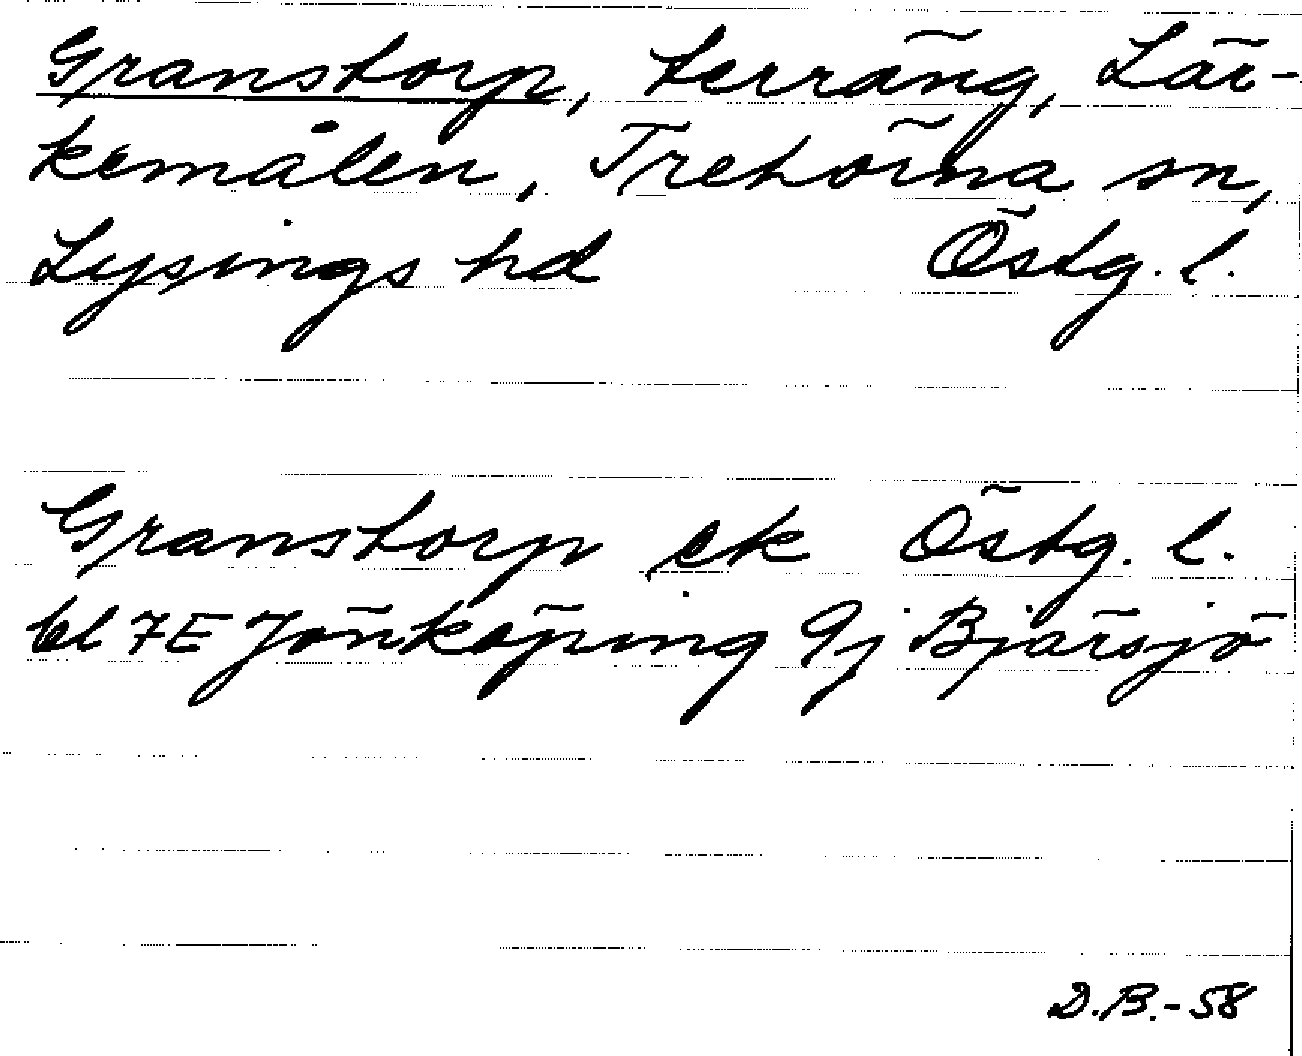 Granstorp, terräng, Lär-
kemålen, Trehörna sn,
Lysings hd Östg. l.
Granstorp ek Östg. l.
bl 7E Jönköping 9j Bjärsjö
D.B.-58